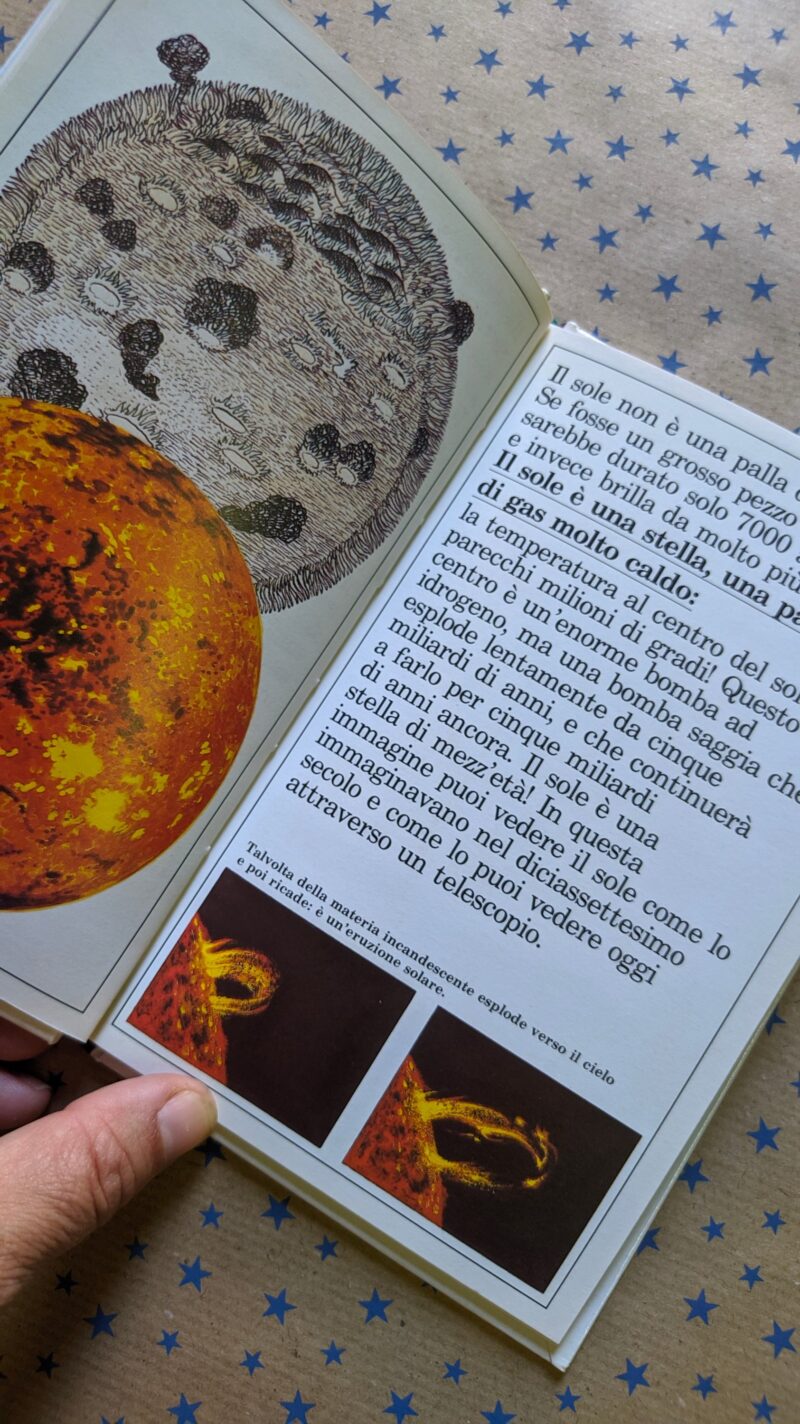 Il sole non è una palla
Se fosse un grosso pezzo
sarebbe durato solo 7000
e invece brilla da molto più
Il sole è una stella, una
di gas molto caldo:
la temperatura al centro del
parecchi milioni di gradi! Questo
centro è un'enorme bomba ad
idrogeno, ma una bomba saggia che
esplode lentamente da cinque
miliardi di anni, e che continuerà
a farlo per cinque miliardi
di anni ancora. Il sole è una
stella di mezz'età! In questa
immagine puoi vedere il sole come lo
immaginavano nel diciassettesimo
secolo e come lo puoi vedere oggi
attraverso un telescopio.
Talvolta della materia incandescente esplode verso il cielo
e poi ricade: è un'eruzione solare.